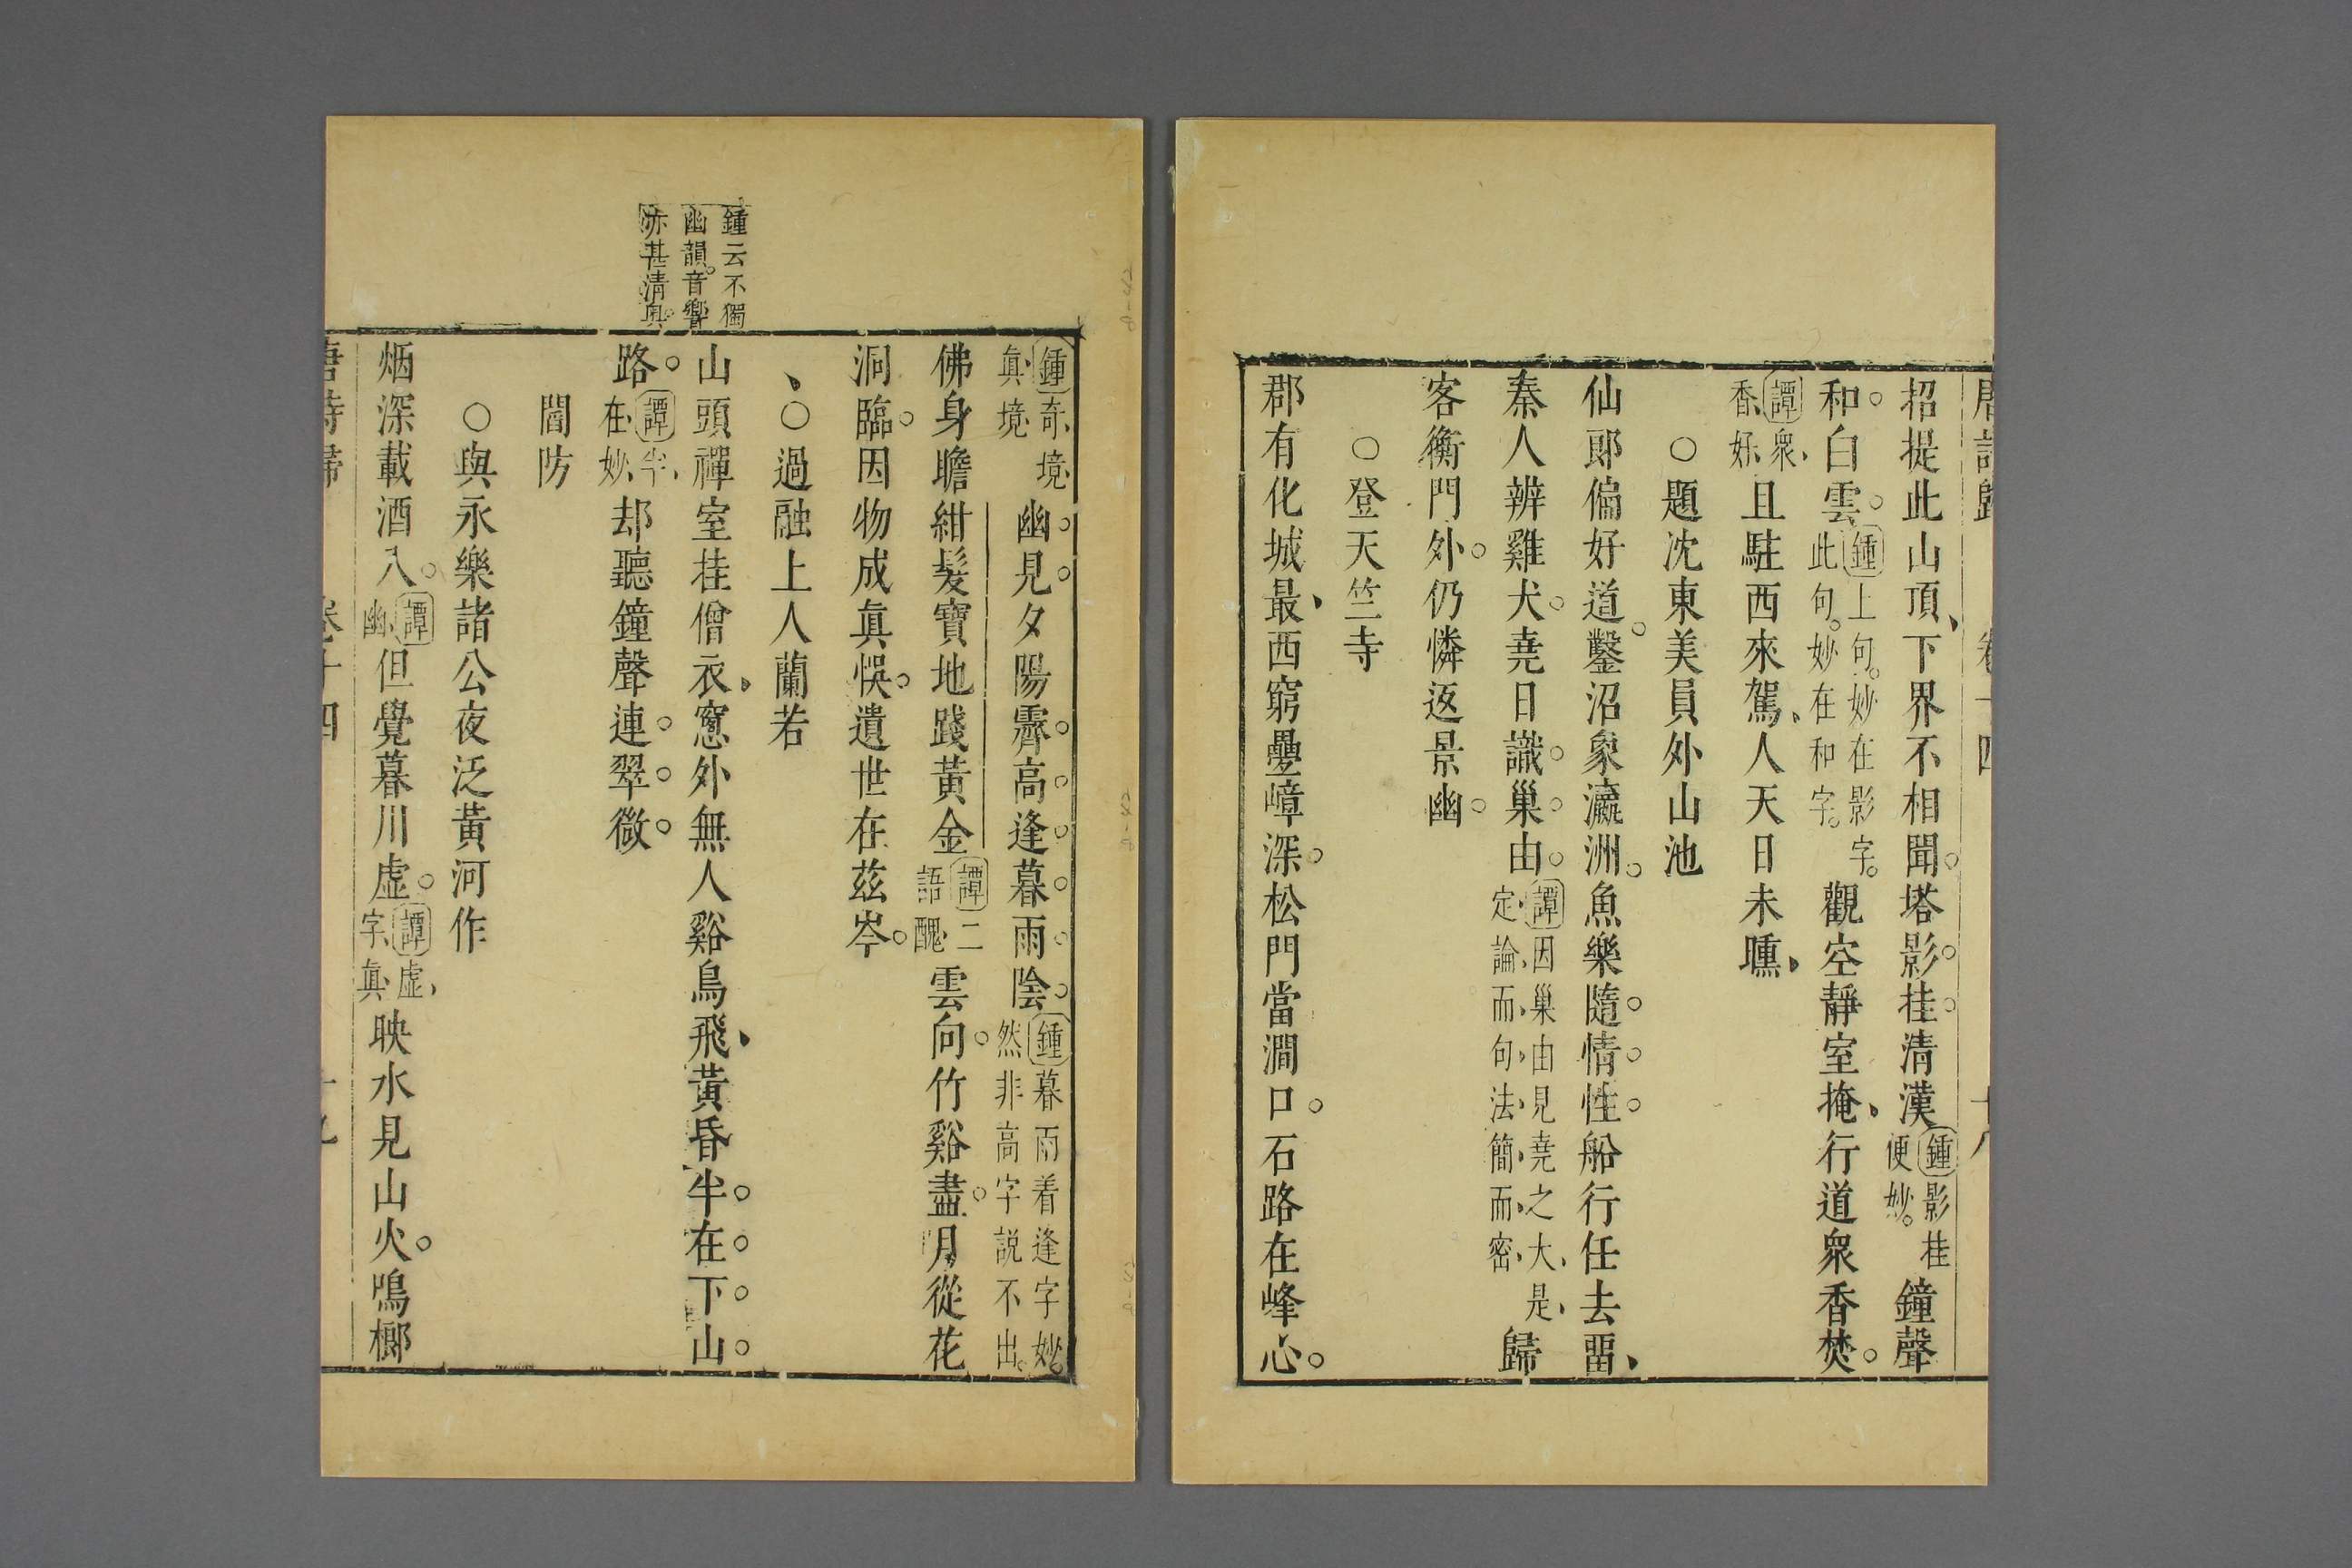 唐詩歸 卷十四 十八
招提此山頂、下界不相聞。塔影挂清漢鍾影挂便妙。鐘聲
和白雲。鍾上句。妙在影字。此句。妙在和字。觀空靜室掩、行道衆香焚。
譚衆、香、好、且駐西來駕、人天日未曛、
○題沈東美員外山池
仙郎偏好道。鑿沼象瀛洲。魚樂隨情性。船行任去畱、
秦人辨雞犬。堯日識巢由。譚因巢由見堯之大、是、定、論、而、句、法、簡、而、密、歸
客衡門外。仍憐返景幽。
○登天竺寺
郡有化城最、西窮疊嶂深。松門當澗口。石路在峰心。
鍾云不獨
幽韻。音響
亦甚清奥。
鍾奇、境、眞、境、幽見夕陽霽。高逢暮雨陰。鍾暮雨着逢字妙。然非高字説不出。
佛身瞻紺髮寶地踐黃金譚二語醜、雲向竹谿盡。月從花
洞臨。因物成眞悞。遺世在茲岑。
、○過融上人蘭若
山頭禪室挂僧衣、窻外無人谿鳥飛、黃昏半在下山。
路。譚半、在、妙、却聽鐘聲連翠微。
閻防
○與永樂諸公夜泛黃河作
烟深載酒入。譚幽、但覺暮川虛。譚虛、字、眞、映水見山火。鳴榔
唐詩歸 卷十四 十九